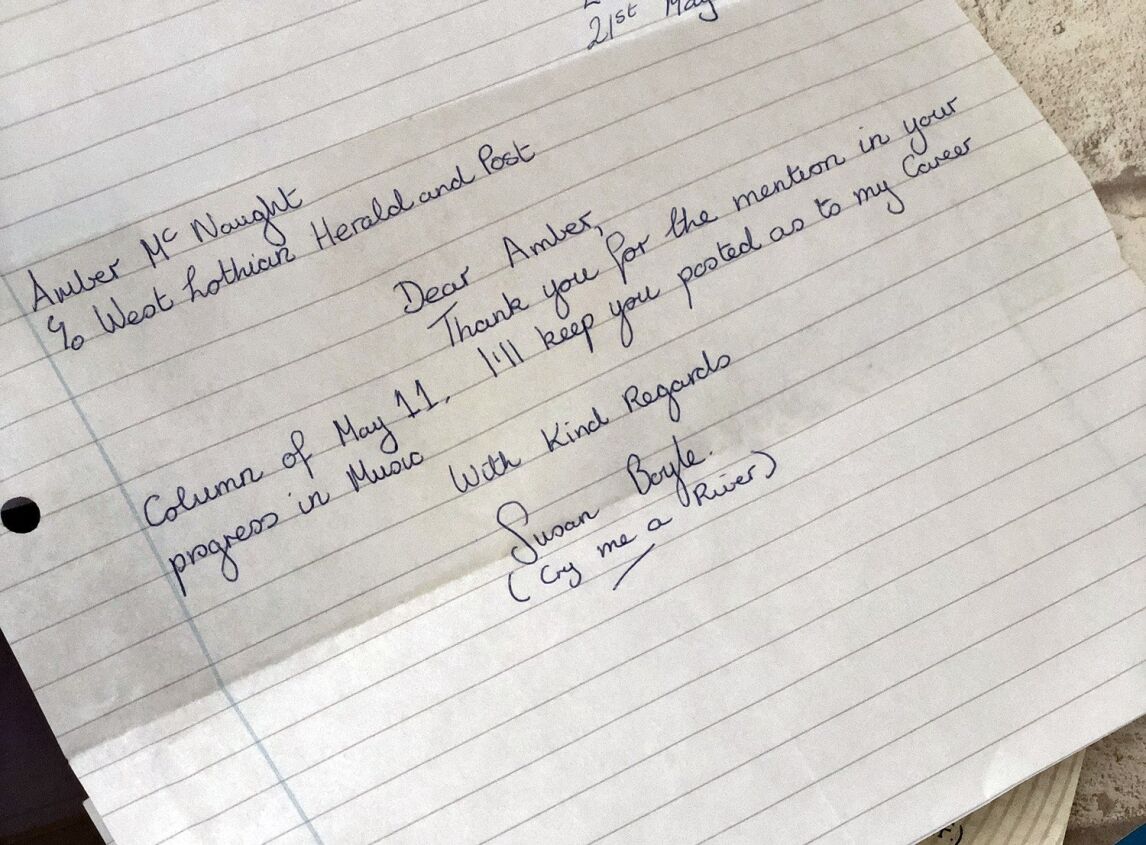 21st May
Amber Mc Naught
c/o West Lothian Herald and Post
Dear Amber,
Thank you for the mention in your
Column of May 11. I'll keep you posted as to my Career
progress in Music
With Kind Regards
Susan Boyle.
(Cry me a River)